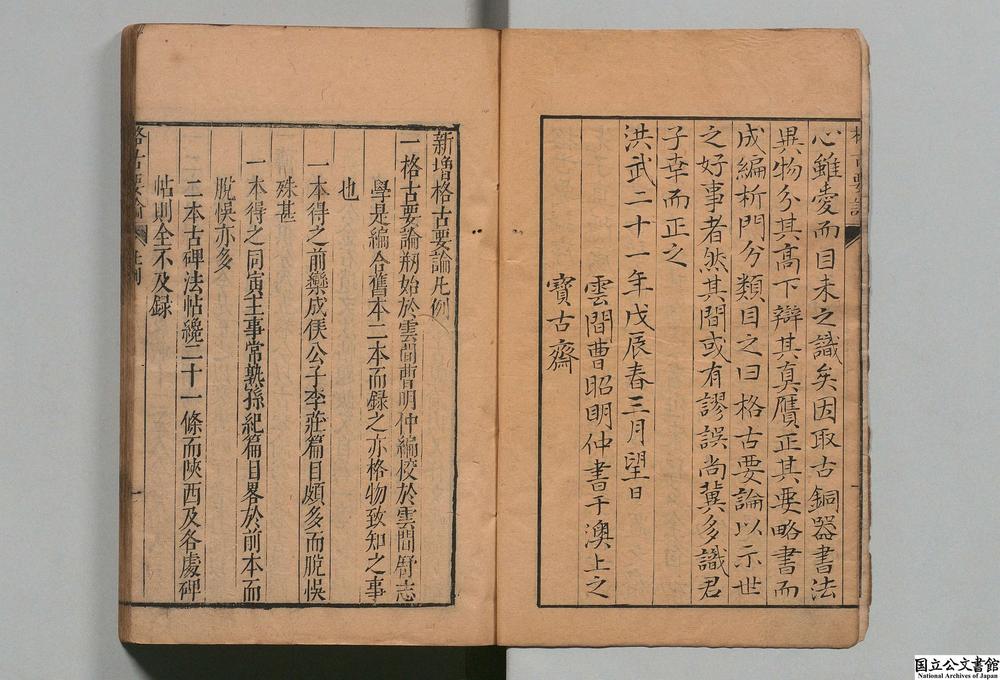 心雖愛而目未之識矣因取古銅器書法
異物分其高下辯其真贋正其要略書而
成編析門分類目之曰格古要論以示世
之好事者然其間或有謬誤尚冀多識君
子幸而正之
洪武二十一年戊辰春三月望日
雲間曹昭明仲書于澳上之
寶古齋
新增格古要論凡例
一格古要論刱始於雲間曹明仲編校於雲間舒志
學是編合舊本二本而錄之亦格物致知之事
也
一本得之前欒成侯公子李莊篇目頗多而脫悞
殊甚
一本得之同寅主事常熟孫紀篇目畧於前本而
脫悞亦多
二本古碑法帖纔二十一條而陝西及各處碑
帖則全不及録
格古要論
一
国立公文書館
National Archives of Japan